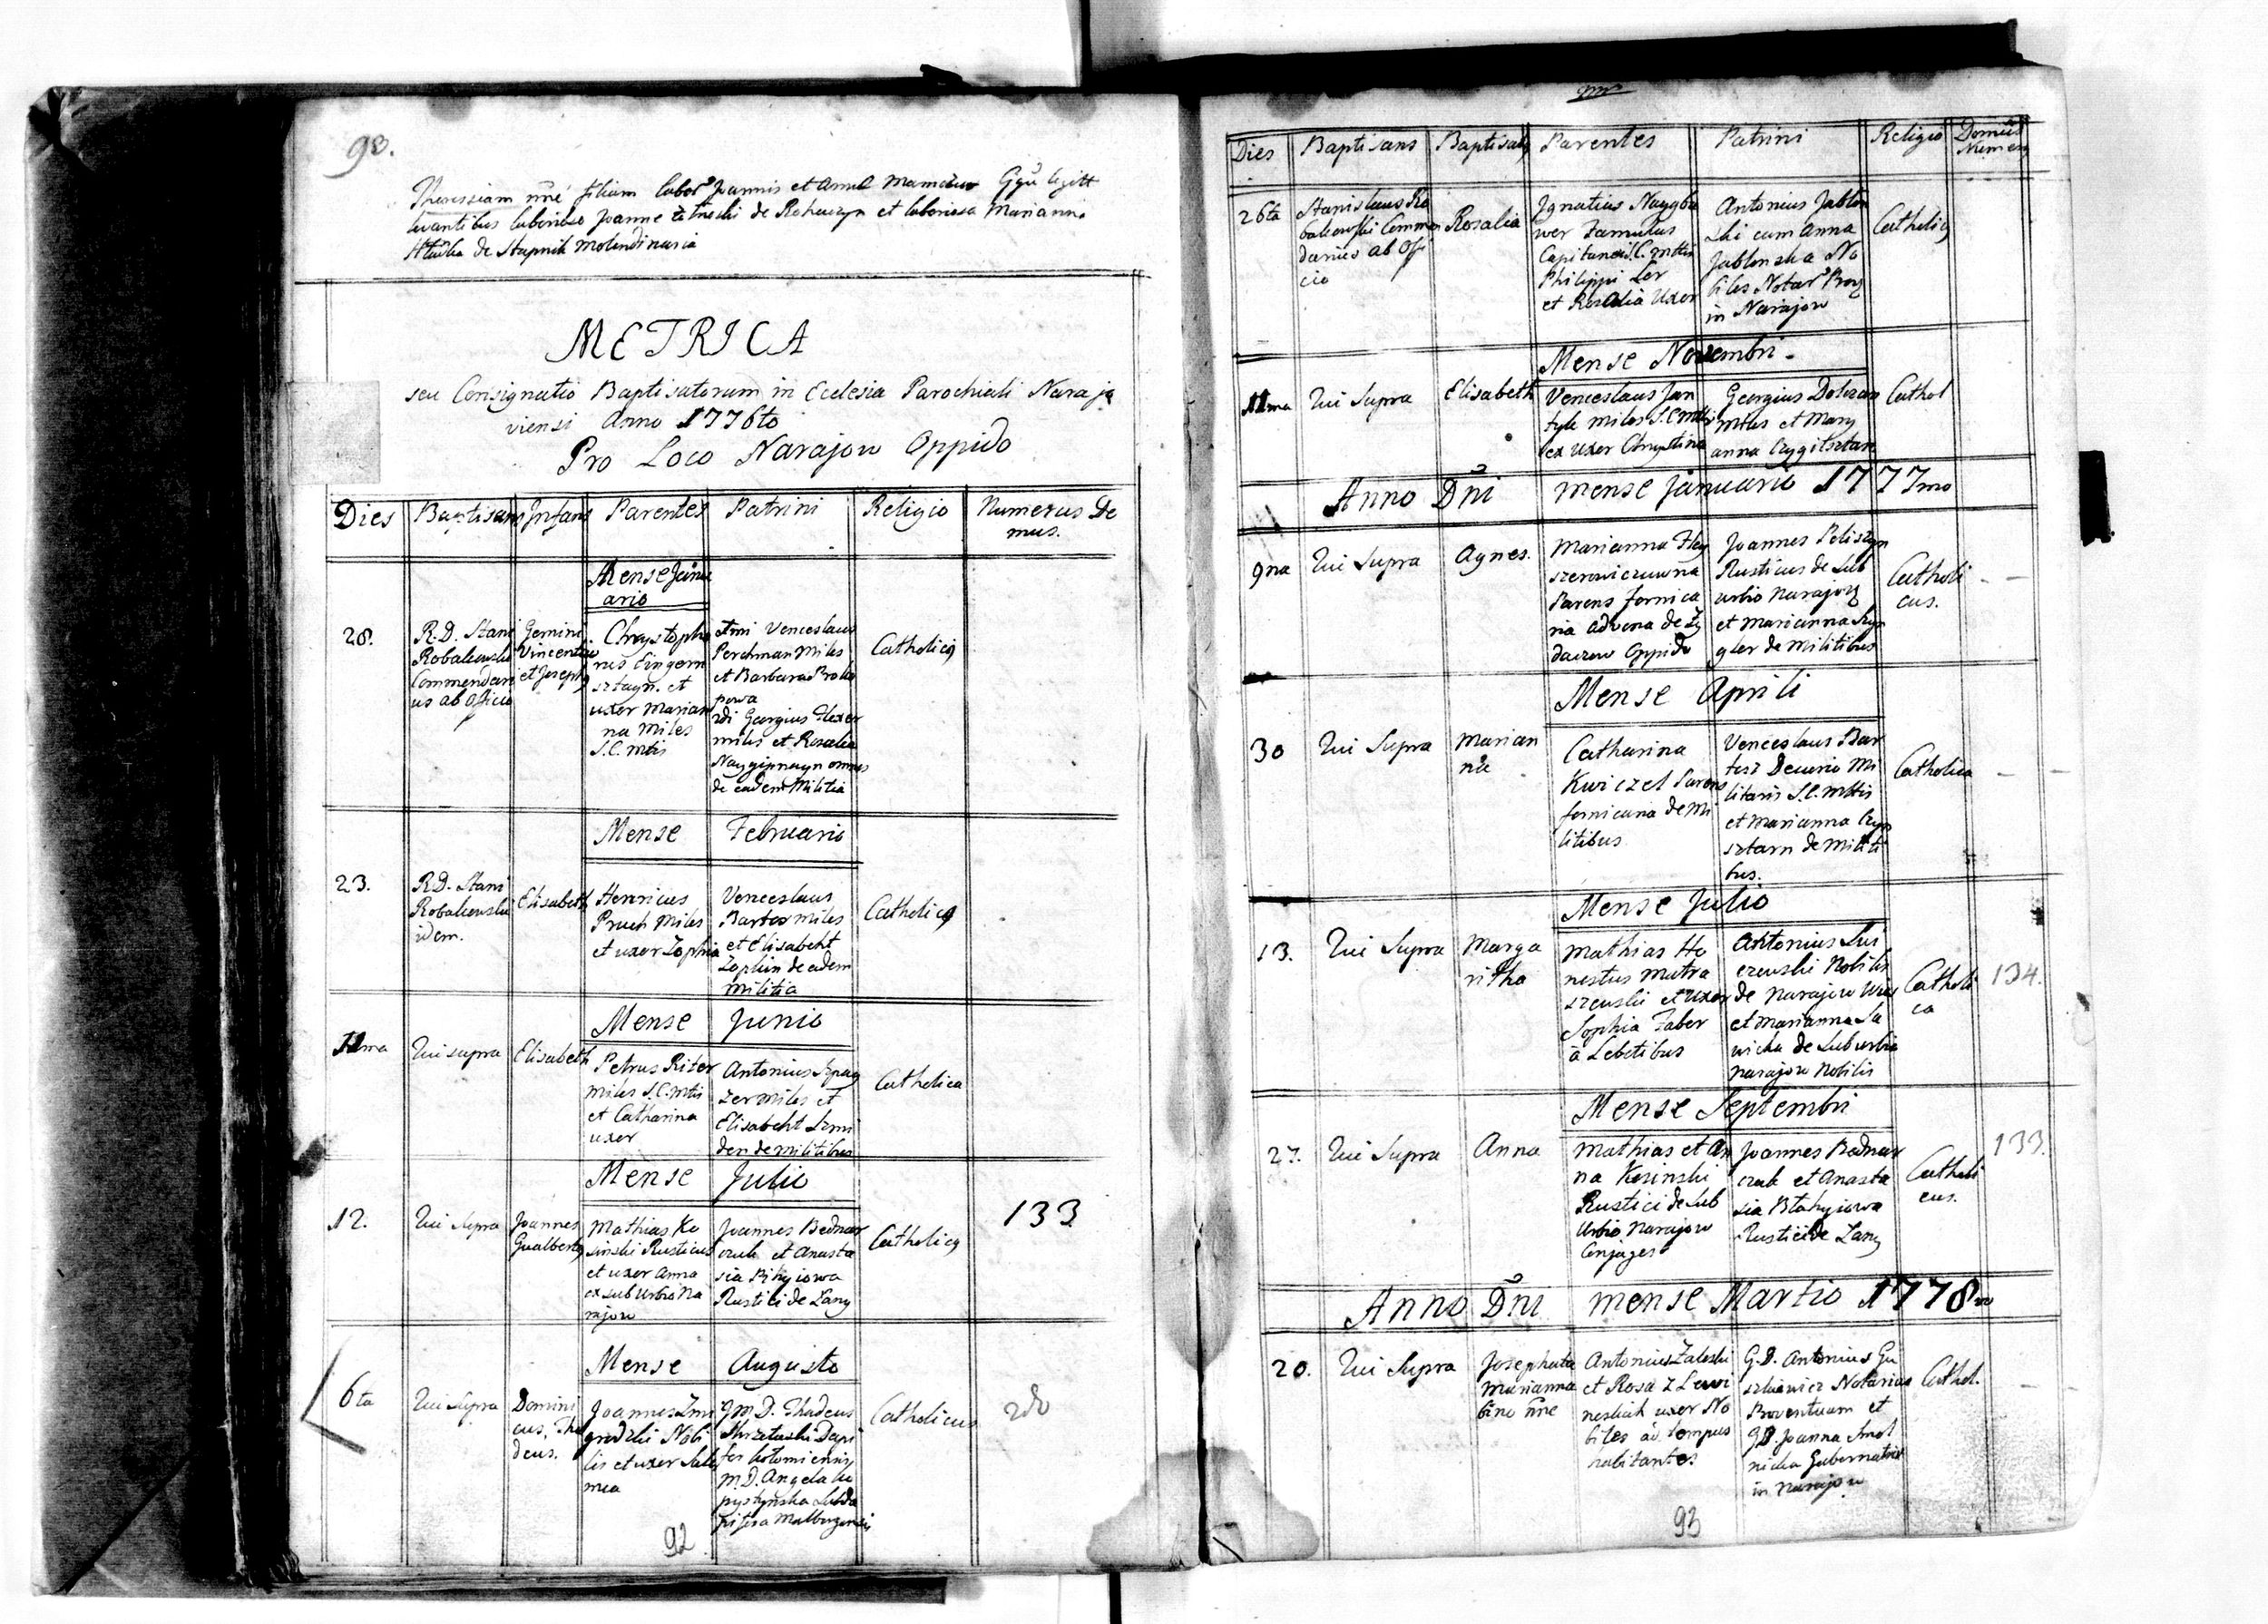 93.
Theressiam nñe filiam labor Joannis et Anna
levantibus laborioso Joanne de Rohaczyn et laboriosa Marianna
de Stupnik Molendinaria
METRICA
seu Consignatio Baptisatorum in Ecclesia Parochiali Naraja
viensi Anno 1776to
Pro Loco Narajow Oppido
Dies Baptisans Infans Parentes Patrini Religio Numerus Do
mus.
Mense Janu
ario
28.
R.D. Stani
Robakowski
Commendari
us ab officio
Gemini
Vincentius
et Joseph
Chrystopho
rus Eingern
sztayn. et
uxor Marian
na Miles
S.C. Mtis
1mi Venceslaus
Perchman Miles
et Barbara Proko
powa
2di Georgius Hexer
miles et Rosalia
omnes
de eadem Militia
Catholicq
Mense Februario
23.
R.D. Stani
Robakowski
idem.
Elisabeth
Henricus
Pruch Miles
et uxor Zophia
Venceslaus
Bartos miles
et Elisabeht
Zophin de eadem
militia
Catholicq
Mense Junio
11ma
Qui supra
Elisabeth
Petrus Riter
miles S.C. Mtis
et Catharina
uxor
Antonius Szpay
zer miles et
Elisabeht Szmi
den de militibus
Catholica
Mense Julio
12.
Qui Supra
Joannes
Gualbertq
Mathias Ko
sinski Rusticus
et uxor Anna
ex suburbio Na
rajow
Joannes Bednar
czuk et Anasta
sia
Rustici de Lany
Catholicq
133
Mense Augusto
6ta
Qui Supra
Domini
cus, Tha
deus.
Joannes Zmi
grodzki Nobi
lis et uxor Salo
mea
J M D. Thadeus
Skrzetuski Dapi
fer kolomiensis
M.D. Angela Ko
pystynska Subda
pifera Malborgensis
Catholicus
28
92
Dies Baptisans Baptisatq Parentes Patrini Religio Domus
Numerq
26ta
Stanislaus Ro
bakowski Commen
darius ab Offi
cio
Rosalia
Ignatius Naygba
wer Famulus
Capitanei S.C. Mttis
Philippi Ler
et Rosalia Uxor
Antonius Jablon
ski cum Anna
Jablonska No
biles Notar Prov
in Narajow
Catholicq
Mense Novembri
11ma
Qui Supra
Elisabeth
Venceslaus Jan
tyk miles S.C. Mttis
ex uxor Chrystina
Georgius Dolezan
Miles et Mary
anna
Cathol
Anno Dni mense Januario 1777mo
9na
Qui Supra
Agnes.
Marianna Fley
szerowiczuwna
Parens fornica
ria advena de Zy
daczow Oppido
Joannes Peliszyn
Rusticus de Sub
urbio Narajow
et Marianna Szy
gler de Militibus
Catholi
cus.
Mense Aprili
30
Qui Supra
Marian
na
Catharina
Kwiczel Parens
fornicaria de Mi
litibus
Venceslaus Bar
tosz Decurio Mi
litaris S.C. Mttis
et Marianna Ayn
sztarn de Militi
bus.
Catholica
Mense Julio
13.
Qui Supra
Marga
ritha
Mathias Ho
nestus Mutra
szewski et uxor
Sophia Faber
à Lebetibus
Antonius Sul
czewski Nobilis
de Narajow
et Marianna Sa
wicka de Suburbio
Narajow Nobilis
Catholi
ca
134.
Mense Septembri
27.
Qui Supra
Anna
Mathias et An
na Kosinski
Rustici de Sub
urbio Narajow
Conjuges
Joannes Bednar
czuk et Anasta
sia
Rustici de Lany
Catholi
cus.
133.
Anno Dni mense Martio 1778vo
20.
Qui Supra
Josephata
Marianna
bino nñe
Antonius Zaleski
et Rosa z Lewi
uxor No
biles ad tempus
habitantes
G.D. Antonius Gu
szkiewicz Notarius
Proventuum et
GD. Joanna Smol
nicka Gubernatrix
in Narajow
Cathol.
93